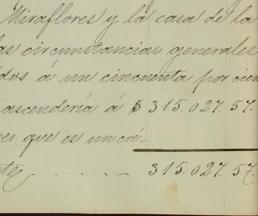 Miraflores y la casa de la
las circunstancias generales
idos á un cincuenta por cien
ascendería á $ 315.027.57.
es que es un cré-
315.027.57.